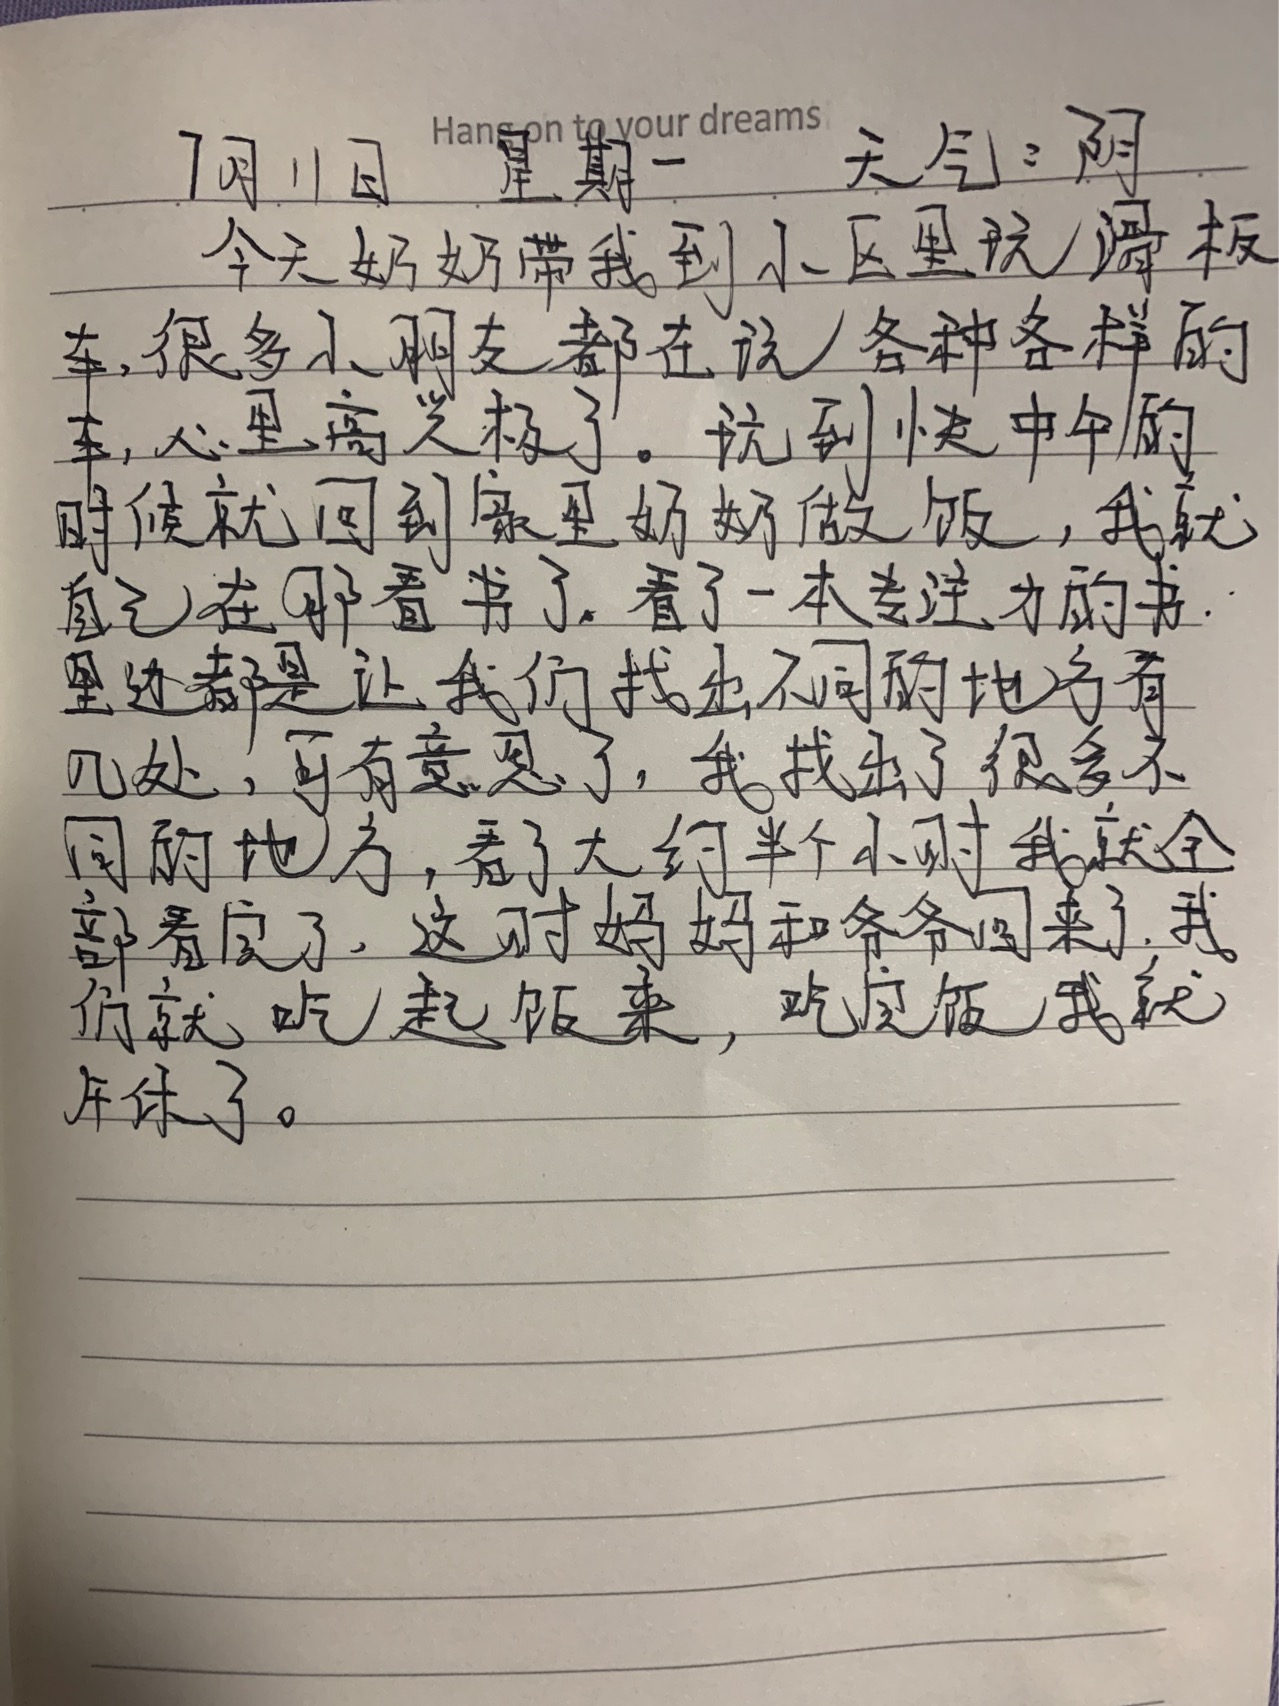 Hang on to your dreams
7月11日 星期一 天气:阴
今天奶奶带我到小区里玩滑板
车,很多小朋友都在玩各种各样的
车,心里高兴极了。玩到快中午的
时候就回到家里奶奶做饭,我就
自己在那看书了.看了一本专注力的书.
里边都是让我们找出不同的地方有
几处,可有意思了,我找出了很多不
同的地方,看了大约半个小时我就全
部看完了、这时妈妈和爷爷回来了.我
们就吃起饭来,吃完饭我就
午休了。